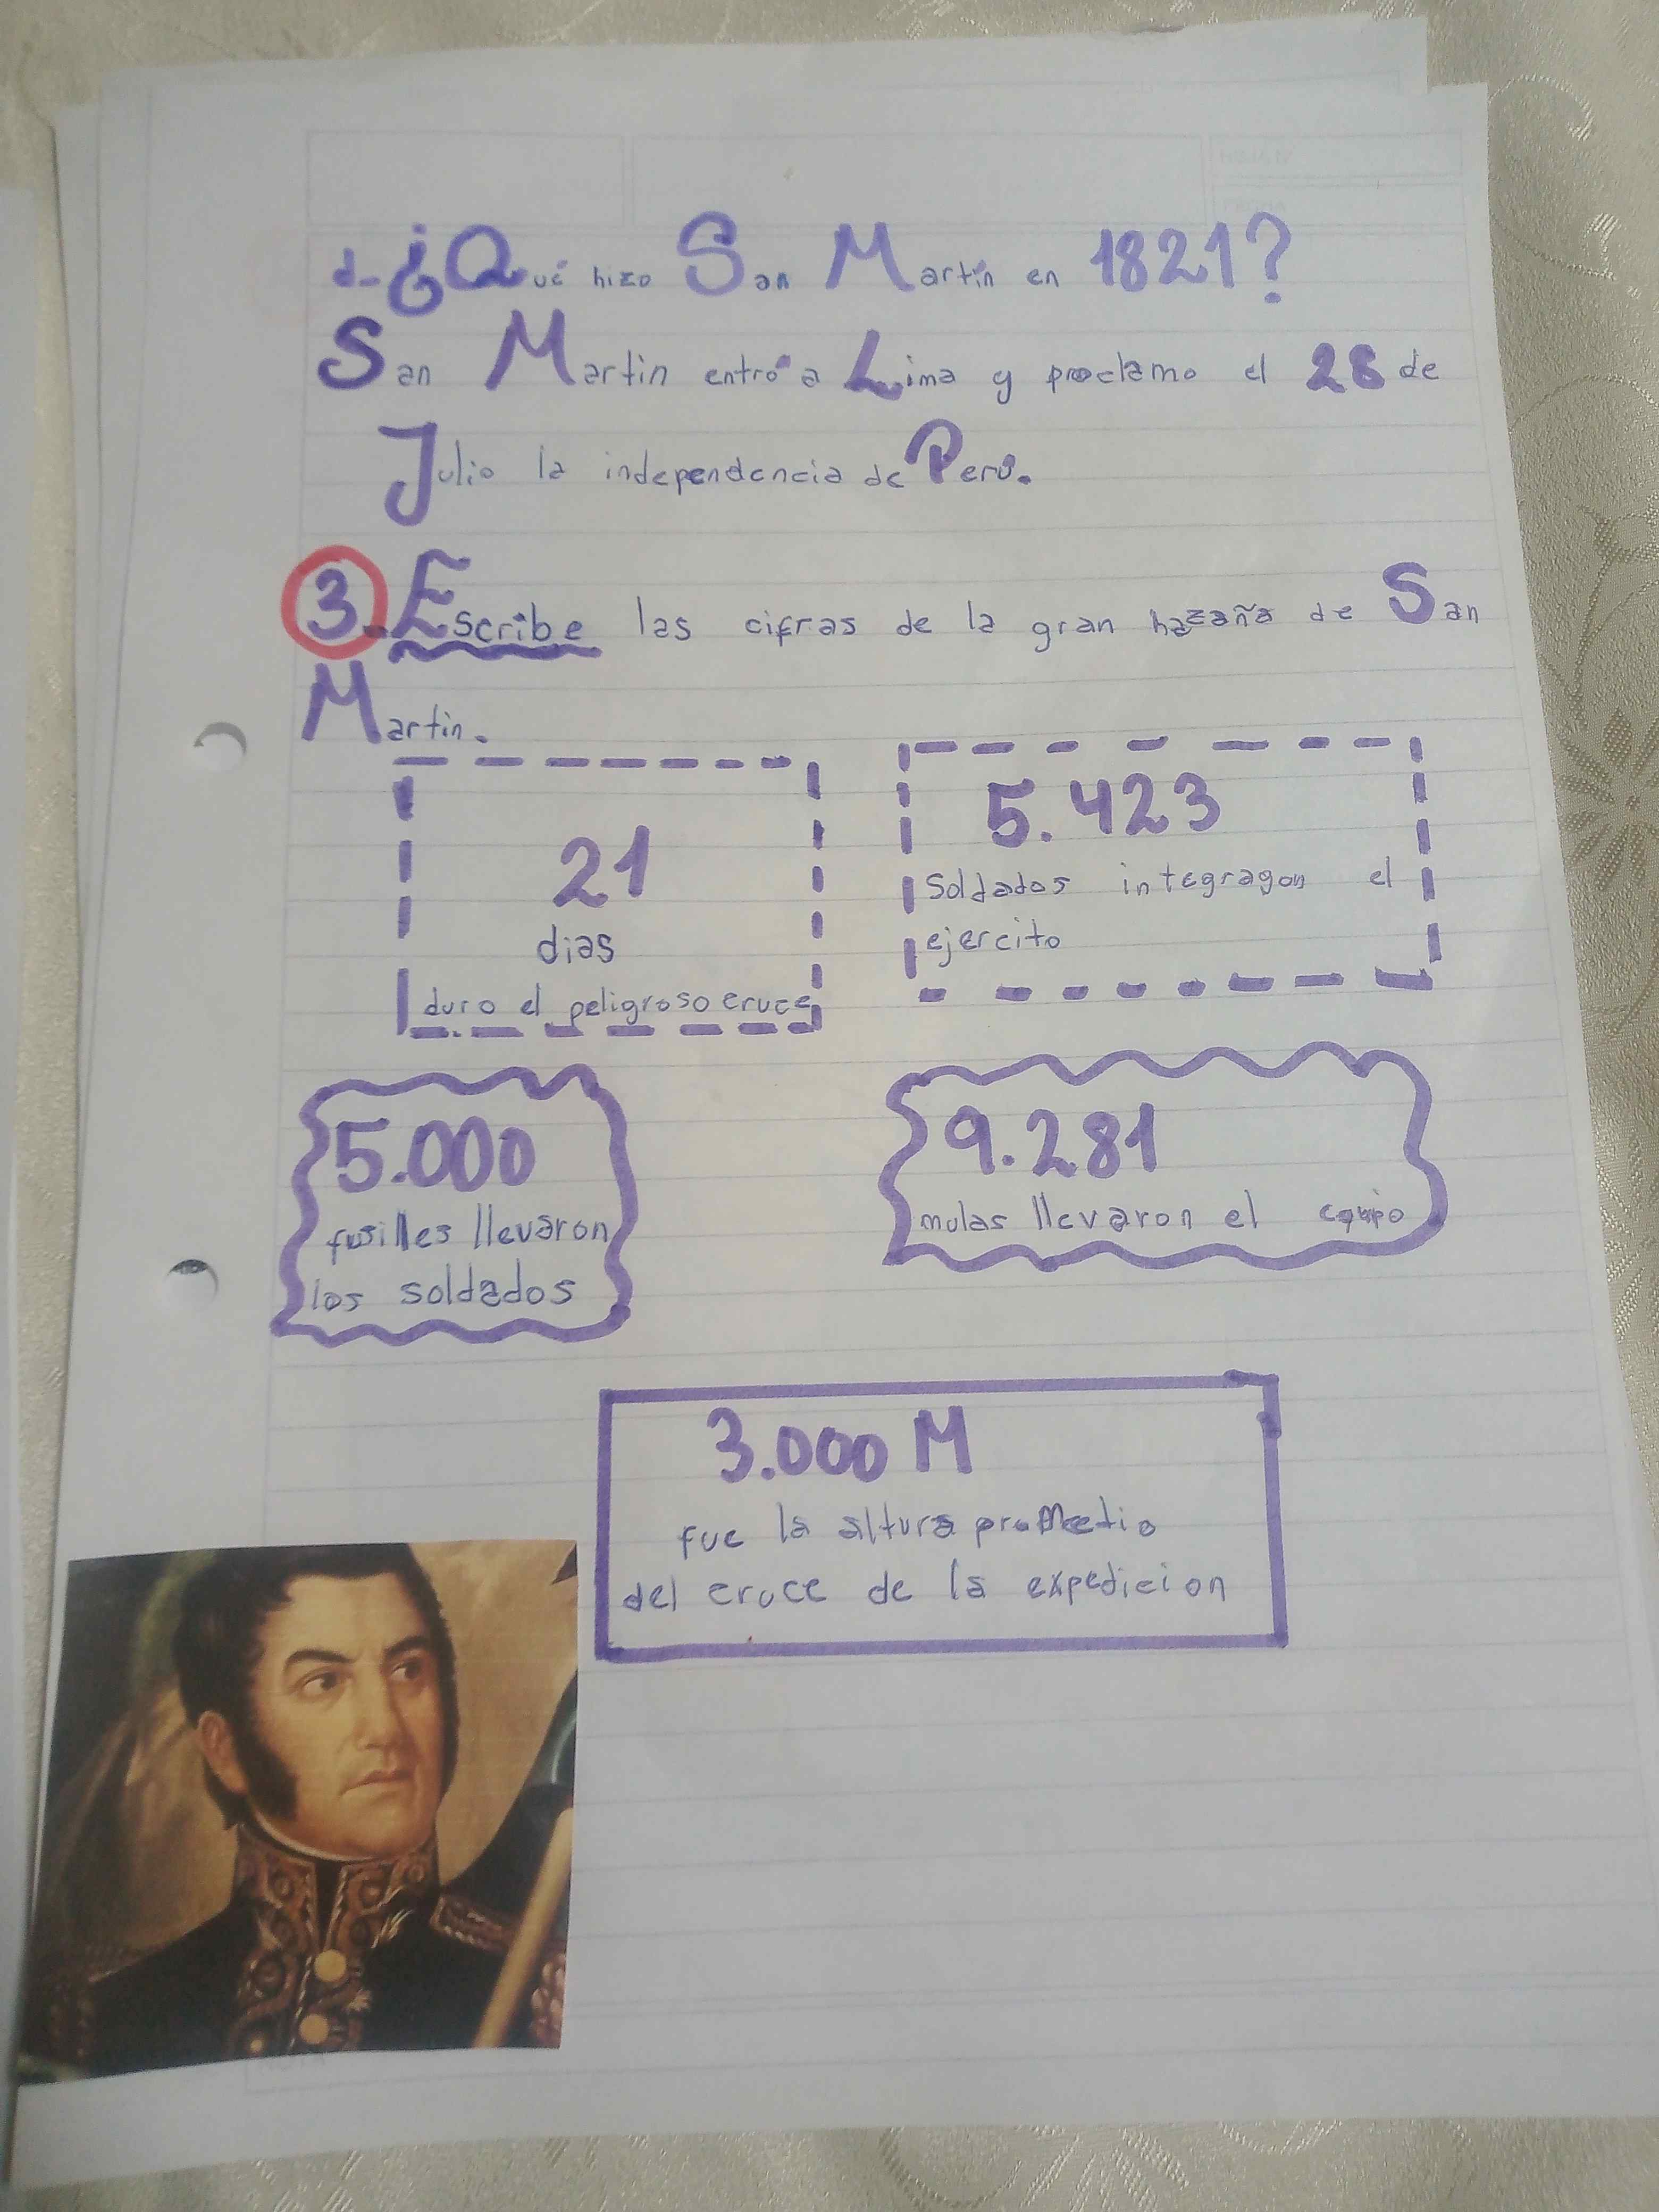 d- ¿Qué hizo San Martín en 1821?
San Martin entró a Lima y proclamo el 28 de
Julio la independencia de Perú.
3. Escribe las cifras de la gran hazaña de San
Martin.
21
dias
duro el peligroso cruce
5.423
Soldados integragon el
ejercito
5.000
fusilles llevaron
los soldados
9.281
mulas llevaron el equipo
3.000 M
fue la altura promedio
del cruce de la expedicion